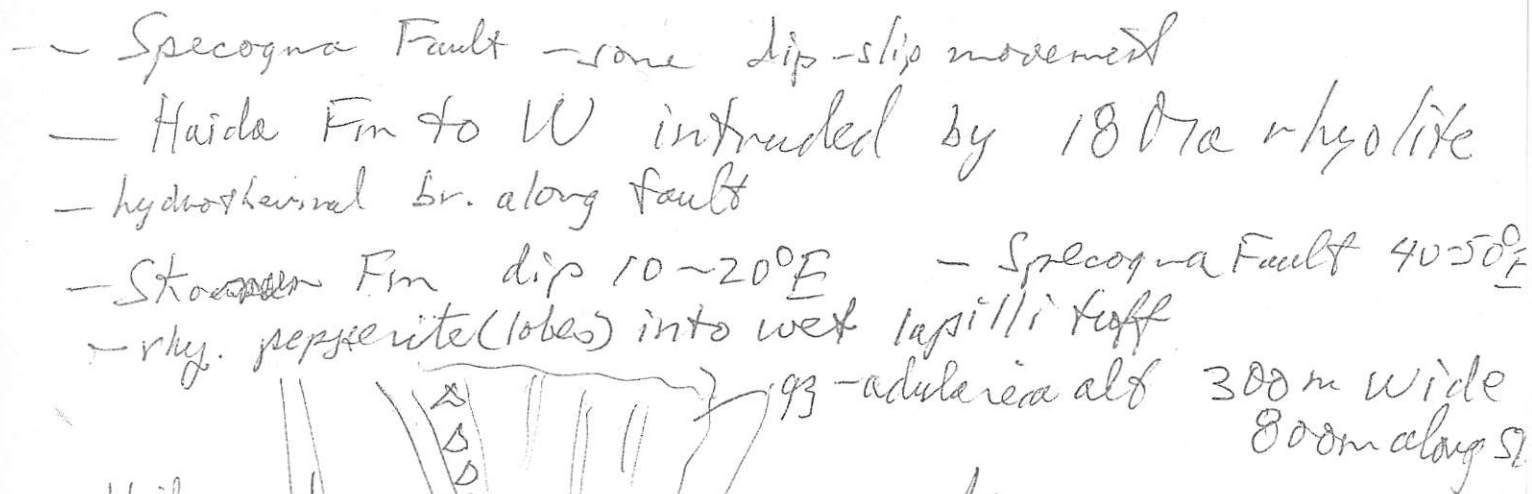 -- Specogna Fault - some dip-slip movement
- Haida Fm to W intruded by 18 Ma rhyolite
- hydrothermal br. along fault
- Fm dip 10-20°E - Specogna Fault 40-50°E
- rhy. pepperite (lobes) into wet lapilli tuff
qz-adularia alt 300m wide
800m along